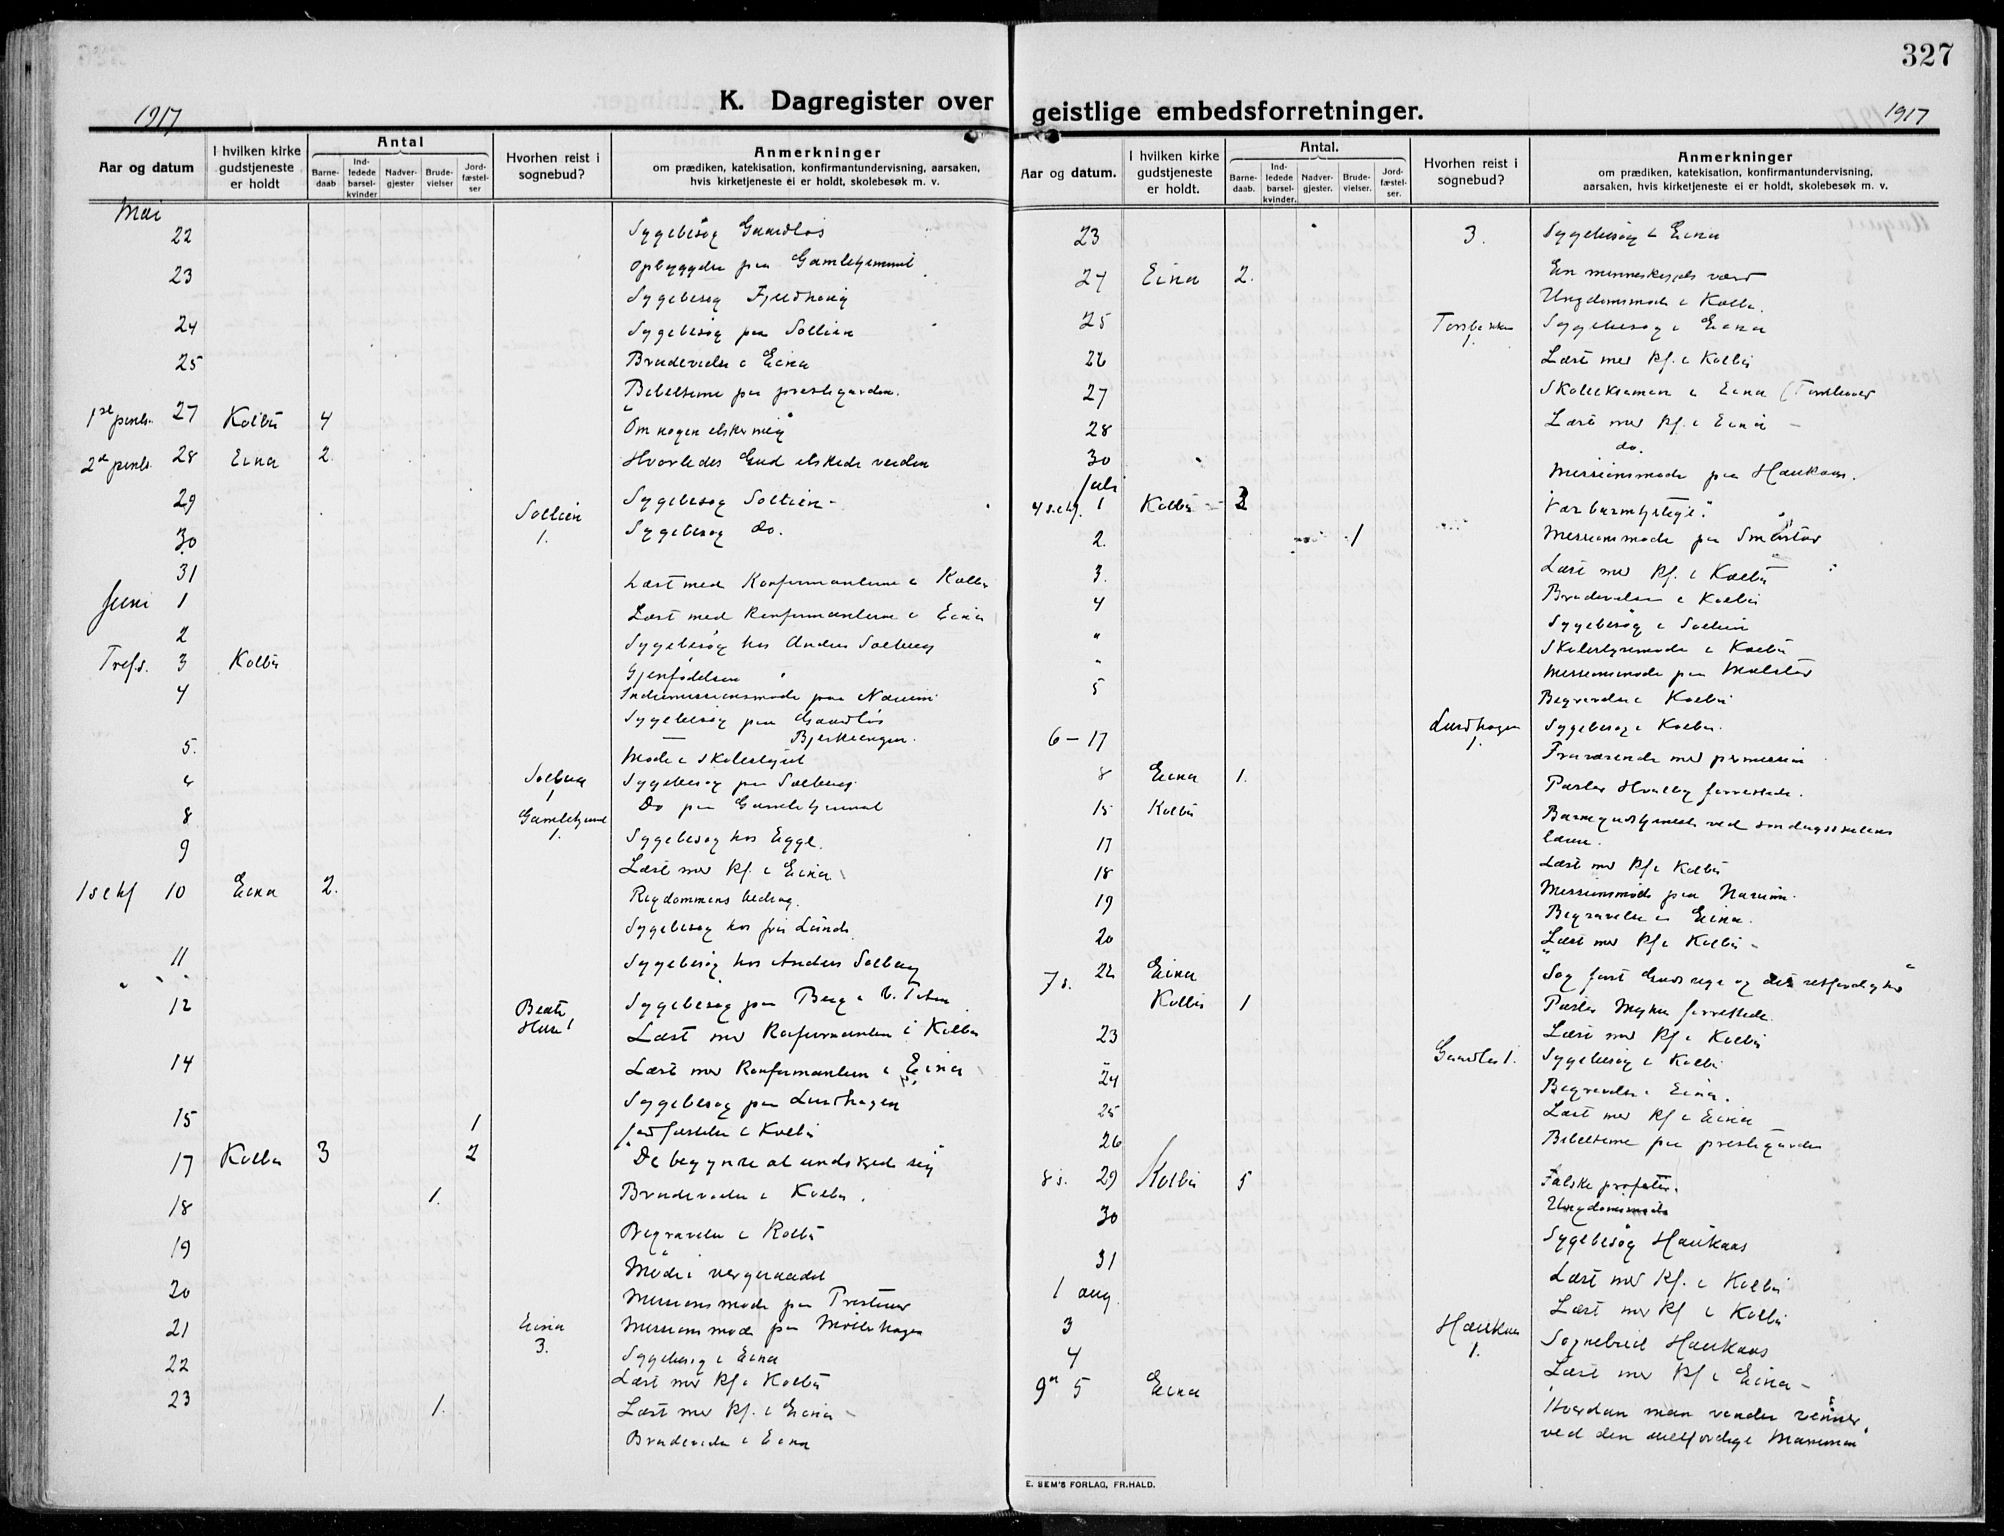 327
K. Dagregister over
geistlige embedsforretninger.
1917
1917
Aar og datum
I hvilken kirke gudstjeneste er holdt
Antal
Barne-daab
Ind-ledede barsel-kvinder
Nadver-gjester
Brude-vielser
Jord-fæstel-ser
Hvorhen reist i sognebud?
Anmerkninger
om prædiken, katekisation, konfirmantundervisning, aarsaken,
hvis kirketjeneste ei er holdt, skolebesøk m. v.
Mai
22 Sygebesøg Gaardløs
23 Opbyggelse paa Gamlehjemmet
Sygebesøg
24 Sygebesøg paa Sollien
25 Brudevielse i Eina
Bibeltime paa prestegarden.
27 Kolbu 4 "Om nogen elsker mig"
28 Eina 2. Hvorledes Gud elskede verden
29 Sollien 1. Sygebesøg Sollien
30 Sygebesøg do.
31 Læst med Konfirmanterne i Kolbu
Juni 1 Læst med Konfirmanterne i Eina
2 Sygebesøg hos Anders Solberg
Trefs. 3 Kolbu Gjenfødelsen
4 Indremissionsmøde paa Narum
Sygebesøg paa Gaardløs
Bjerkeengen.
5. Møde i Skolestyret
6 Solberg 1 Sygebesøg paa Solberg
8 Gamlehjemmet 1. Do paa Gamlehjemmet
9 Sygebesøg hos Egge.
Læst med Kf. i Eina
10 Eina 2. Rigdommens bedrag.
Sygebesøg hos fru Lunde
11 Sygebesøg hos Anders Solberg
12 Sygebesøg paa Berg i V. Toten
Læst med Konfirmanten i Kolbu
14 Læst med Konfirmanten i Eina
Sygebesøg paa Lundhagen
15 1 Jordfæstelse i Kolbu
17 Kolbu 3 2 "De begyndte at undskylde sig"
18 1. Brudevielse i Kolbu.
Begravelse i Kolbu
19 Møde i vergeraadet
20 Missionsmøde paa
21 Eina 3. Missionsmøde paa Møllerhagen
22 Sygebesøg i Eina
Læst med Kf. i Kolbu
23 1. Læst med Kf. i Eina
Brudevielse i Eina
Aar og datum.
I hvilken kirke gudstjeneste er holdt.
Antal.
Barne-daab.
Ind-ledede barsel-kvinder.
Nadver-gjester.
Brude-vielser.
Jord-fæstel-ser.
Hvorhen reist i sognebud?
Anmerkninger
om prædiken, katekisation, konfirmantundervisning,
aarsaken, hvis kirketjeneste ei er holdt, skolebesøk m. v.
23 3. Sygebesøg i Eina
24 Eina 2. En menneskesjæls værd
Ungdomsmøde i Kolbu.
25 1. Sygebesøg i Eina
26 Læst med Kf. i Kolbu
27 Skoleeksamen i Eina
28 Læst med Kf. i Eina
30 do.
Missionsmøde paa Haukaas.
Juli
1 Kolbu 3 "Vær barmhjertige".
2. 1 Missionsmøde paa
3. Læst med Kf. i Kolbu
4 Brudevielse i Kolbu
" Sygebesøg i Sollien
" Skolestyremøde i Kolbu
5 Missionsmøde paa
Begravelse i Kolbu
6 - 17 Lundhagen 1. Sygebesøg i Kolbu.
Fraværende med permission
8 Eina 1. Pastor Hvalby forrettede.
15 Kolbu Barnegudstjeneste ved søndagsskolens
17
Læst med Kf. i Kolbu
18 Missionsmøde paa Narum.
19 Begravelse i Eina.
20 Læst med Kf. i Kolbu
7 s. 22 Eina "Søg først Guds rige og dets retfærdighed"
Kolbu 1 Pastor forrettede.
23 Læst med Kf. i Kolbu
Gaardløs 1. Sygebesøg i Kolbu
24 Begravelse i Eina.
25 Læst med Kf. i Eina
26 Bibeltime paa prestegården
8 s. 29 Kolbu 5 Falske profeter.
30 Ungdomsmøde
Sygebesøg Haukaas
31 Læst med Kf. i Kolbu
1 aug. Læst med Kf. i Kolbu
3 Haukaas 1. Sognebud Haukaas
4 Læst med Kf. i Eina
9 5 Eina "Hvordan man vinder venner
ved den uretfærdige Mammon"
E. SEM'S FORLAG, FR.HALD.